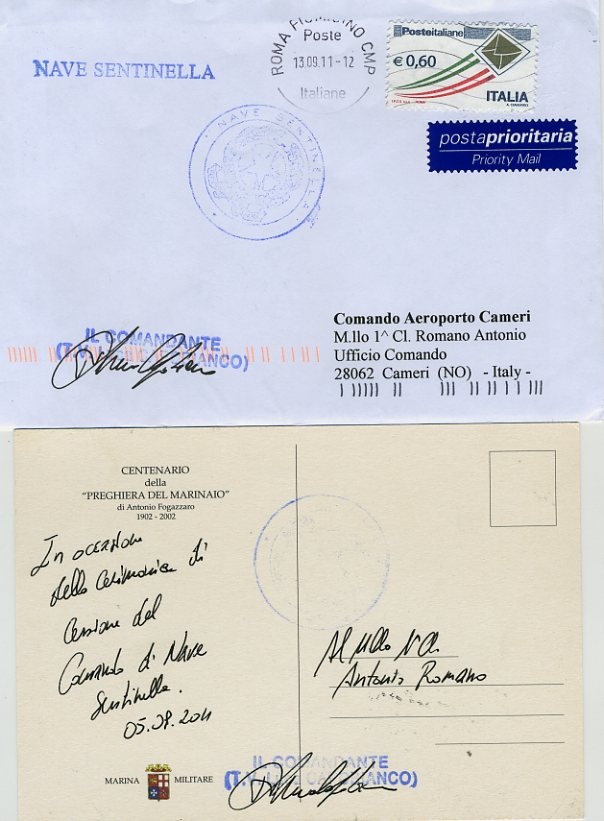 NAVE SENTINELLA
ROMA FIUMICINO CMP
Poste
13.09.11-12
Italiane
Posteitaliane
€ 0,60
ITALIA
postaprioritaria
Priority Mail
NAVE SENTINELLA
Comando Aeroporto Cameri
M.llo 1^ Cl. Romano Antonio
Ufficio Comando
28062 Cameri (NO) - Italy -
IL COMANDANTE
(T.V.
CENTENARIO
della
"PREGHIERA DEL MARINAIO"
di Antonio Fogazzaro
1902 - 2002
In occasione
della cerimonia di
cessione del
Comando di Nave
Sentinella.
05.08.2011
Al M.llo 1^ Cl.
Antonio Romano
MARINA MILITARE
IL COMANDANTE
(T.V.